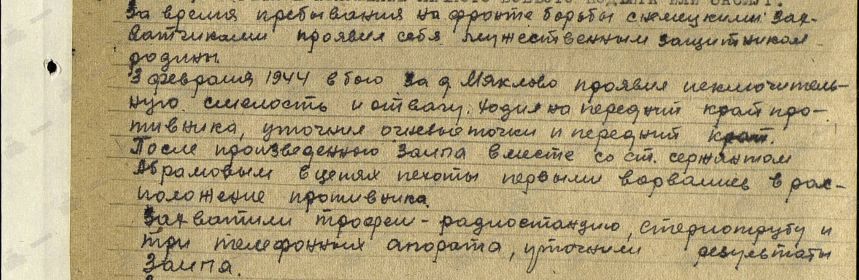 За время пребывания на фронте борьбы с немецкими зах-
ватчиками проявил себя мужественным защитником
родины.
3 февраля 1944 в бою за д. Мяклово проявил исключитель-
ную смелость и отвагу. Ходил на передний край про-
тивника, уточнил огневые точки и передний край.
После произведенного залпа вместе со ст. сержантом
Абрамовым в цепях пехоты первыми ворвались в рас-
положение противника.
Захватили трофеи - радиостанцию, стериотрубу и
три телефонных апората, уточнили результаты
залпа.